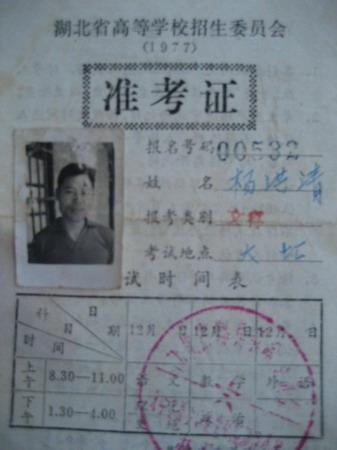 湖北省高等学校招生委员会
(1977)
准考证
报名号码 00532
姓 名 杨洪清
报考类别 文科
考试地点
试时间表
科 日 日 期 12月 日 12月 日 12月 日
时 间
上午 8.30—11.00 语文 数学 外语
下午 1.30—4.00